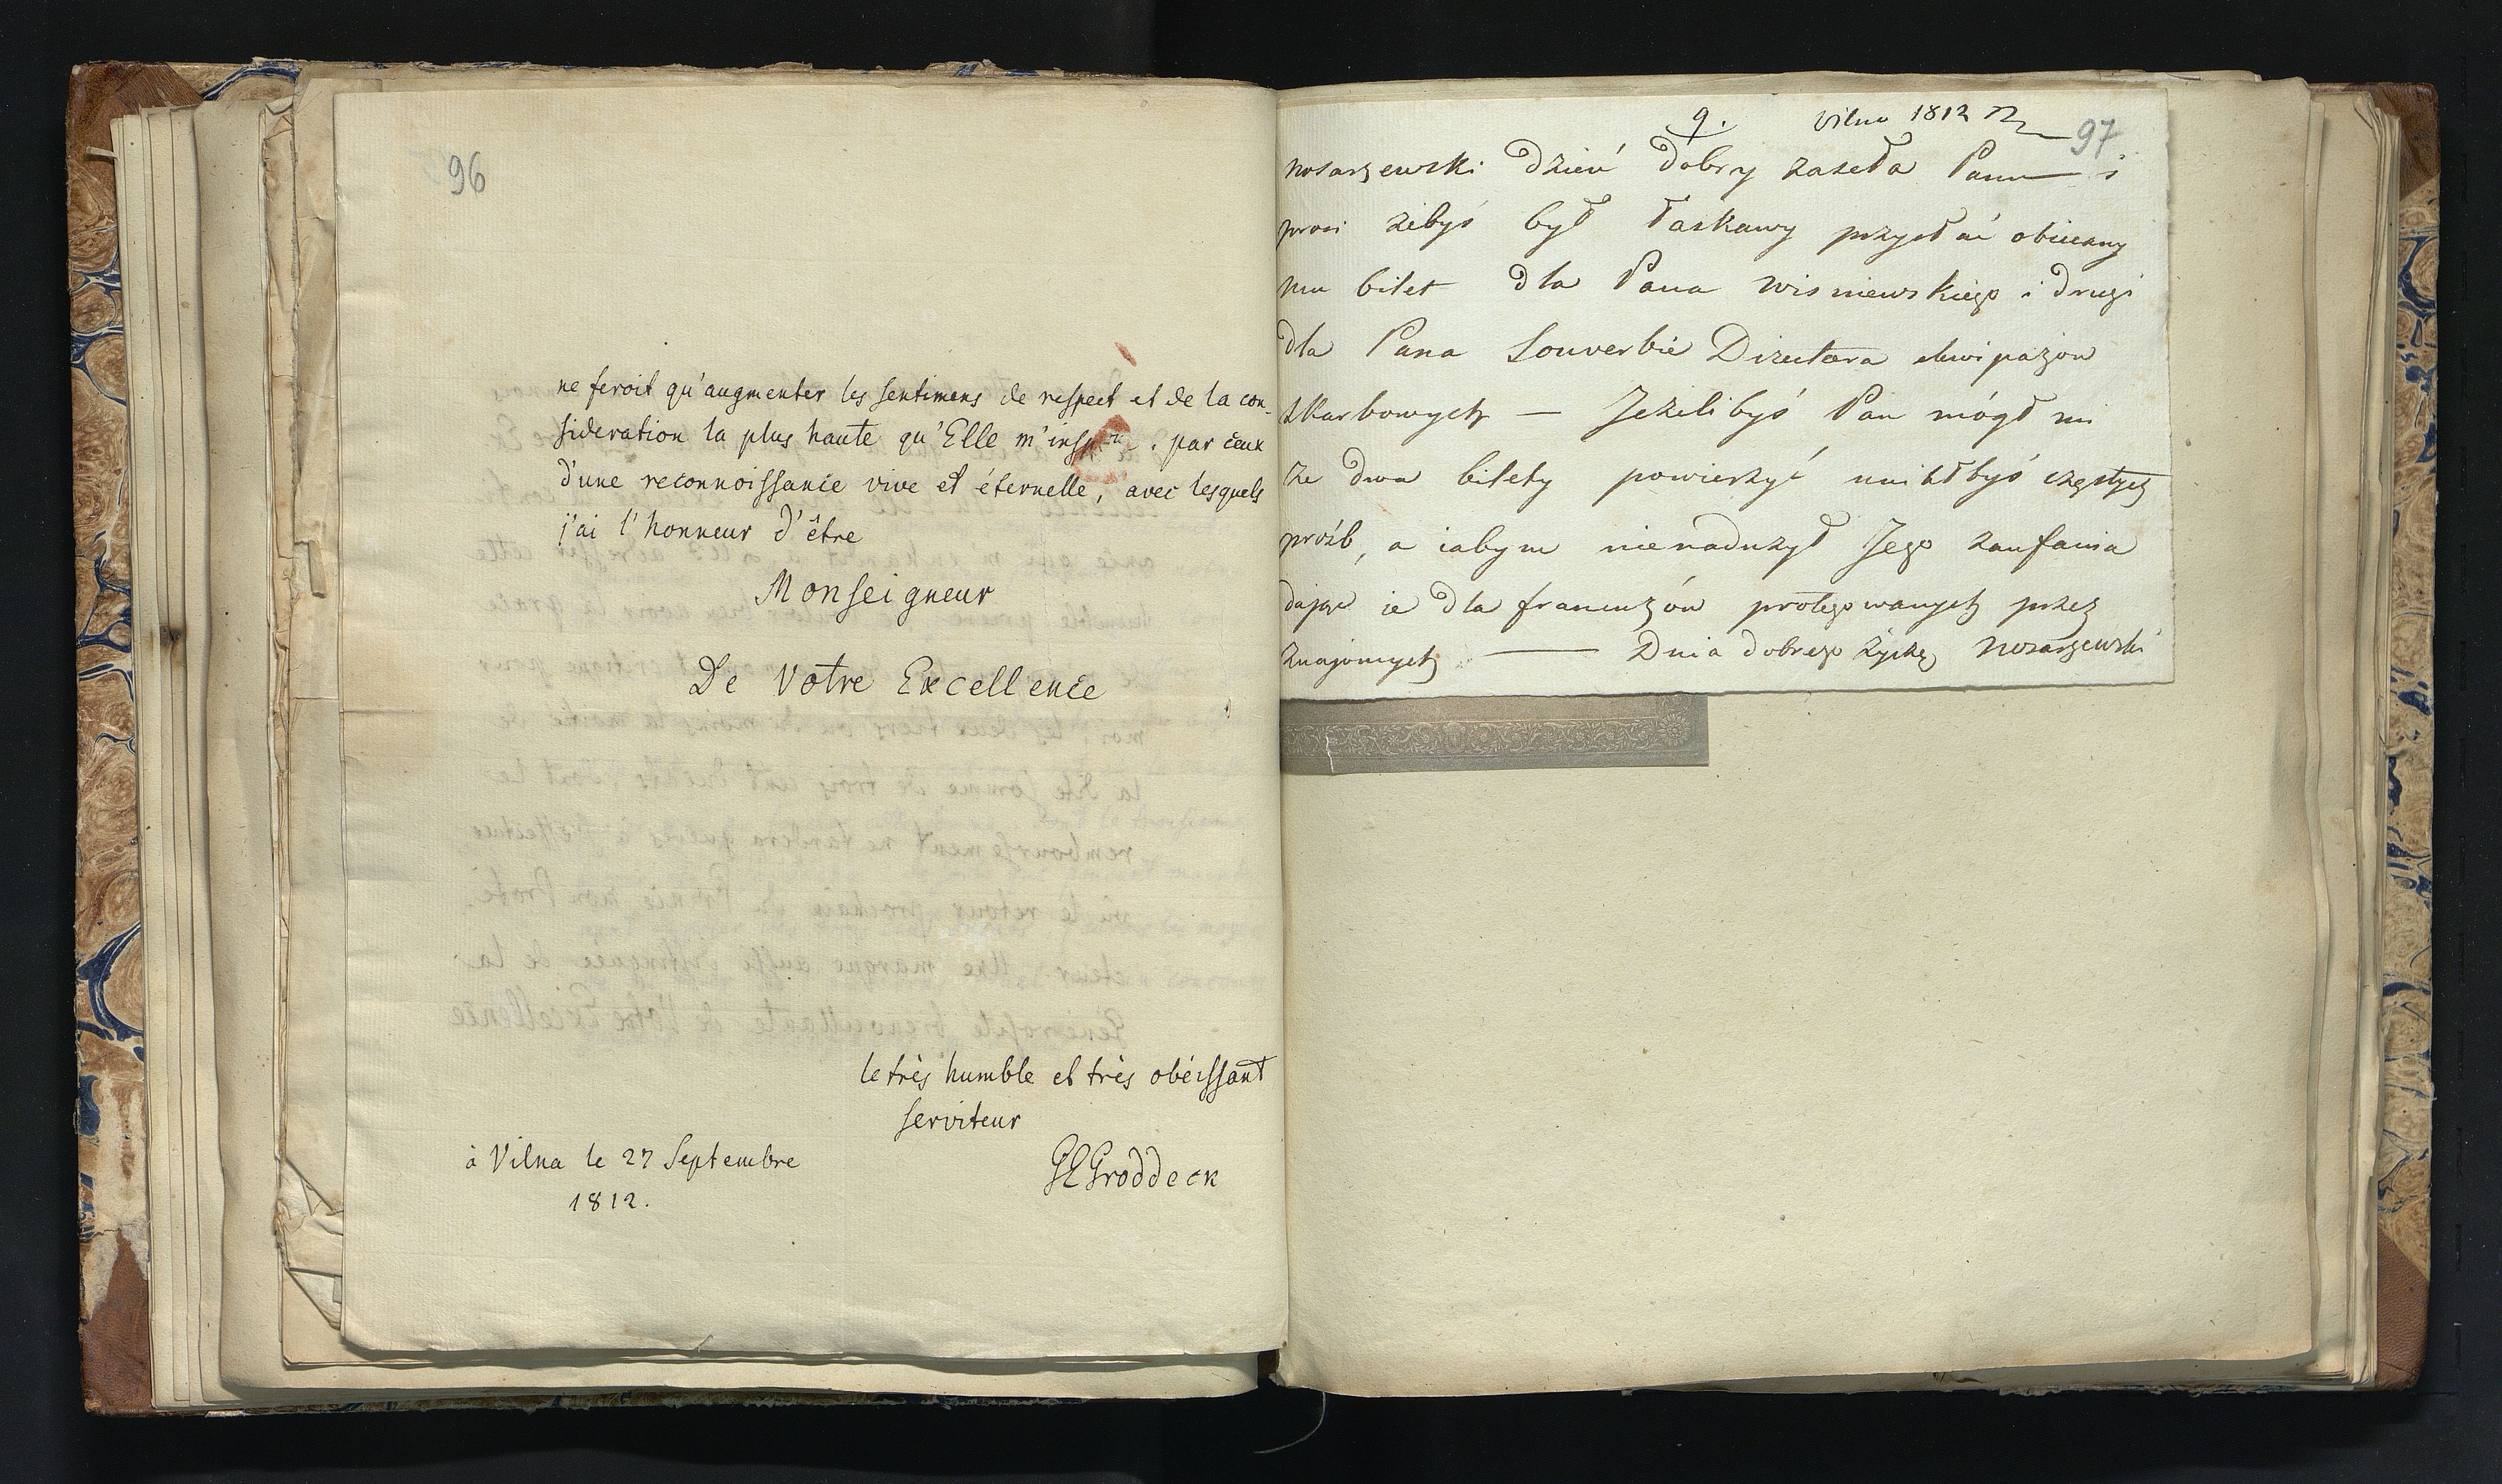 96
ne feroit qu'augmenter les sentimens de respect et de la con-
sideration la plus haute qu'Elle m'inspire, par ceux
d'une reconnoissance vive et éternelle, avec lesquels
j'ai l'honneur d'être
Monseigneur
De Votre Excellence
le très humble et très obéissant
serviteur
à Vilna le 27 Septembre
1812.
GEGroddeck
9. Vilno 1812
97
Nosarzewski dzień dobry zaseła Panu i
prosi żebyś był łaskawy przysłać obiecany
mu bilet dla Pana Wisniewskiego i drugi
dla Pana Souverbie Directora ekwipazow
skarbowych — Jeżelibyś Pan mógł mi
ze dwa bilety powierzyć uniktbyś częstych
próźb, a iabym nienadużył Jego zaufania
dając ie dla francuzów protegowanych przez
znajomych — Dnia dobrego życzę Nosarzewski